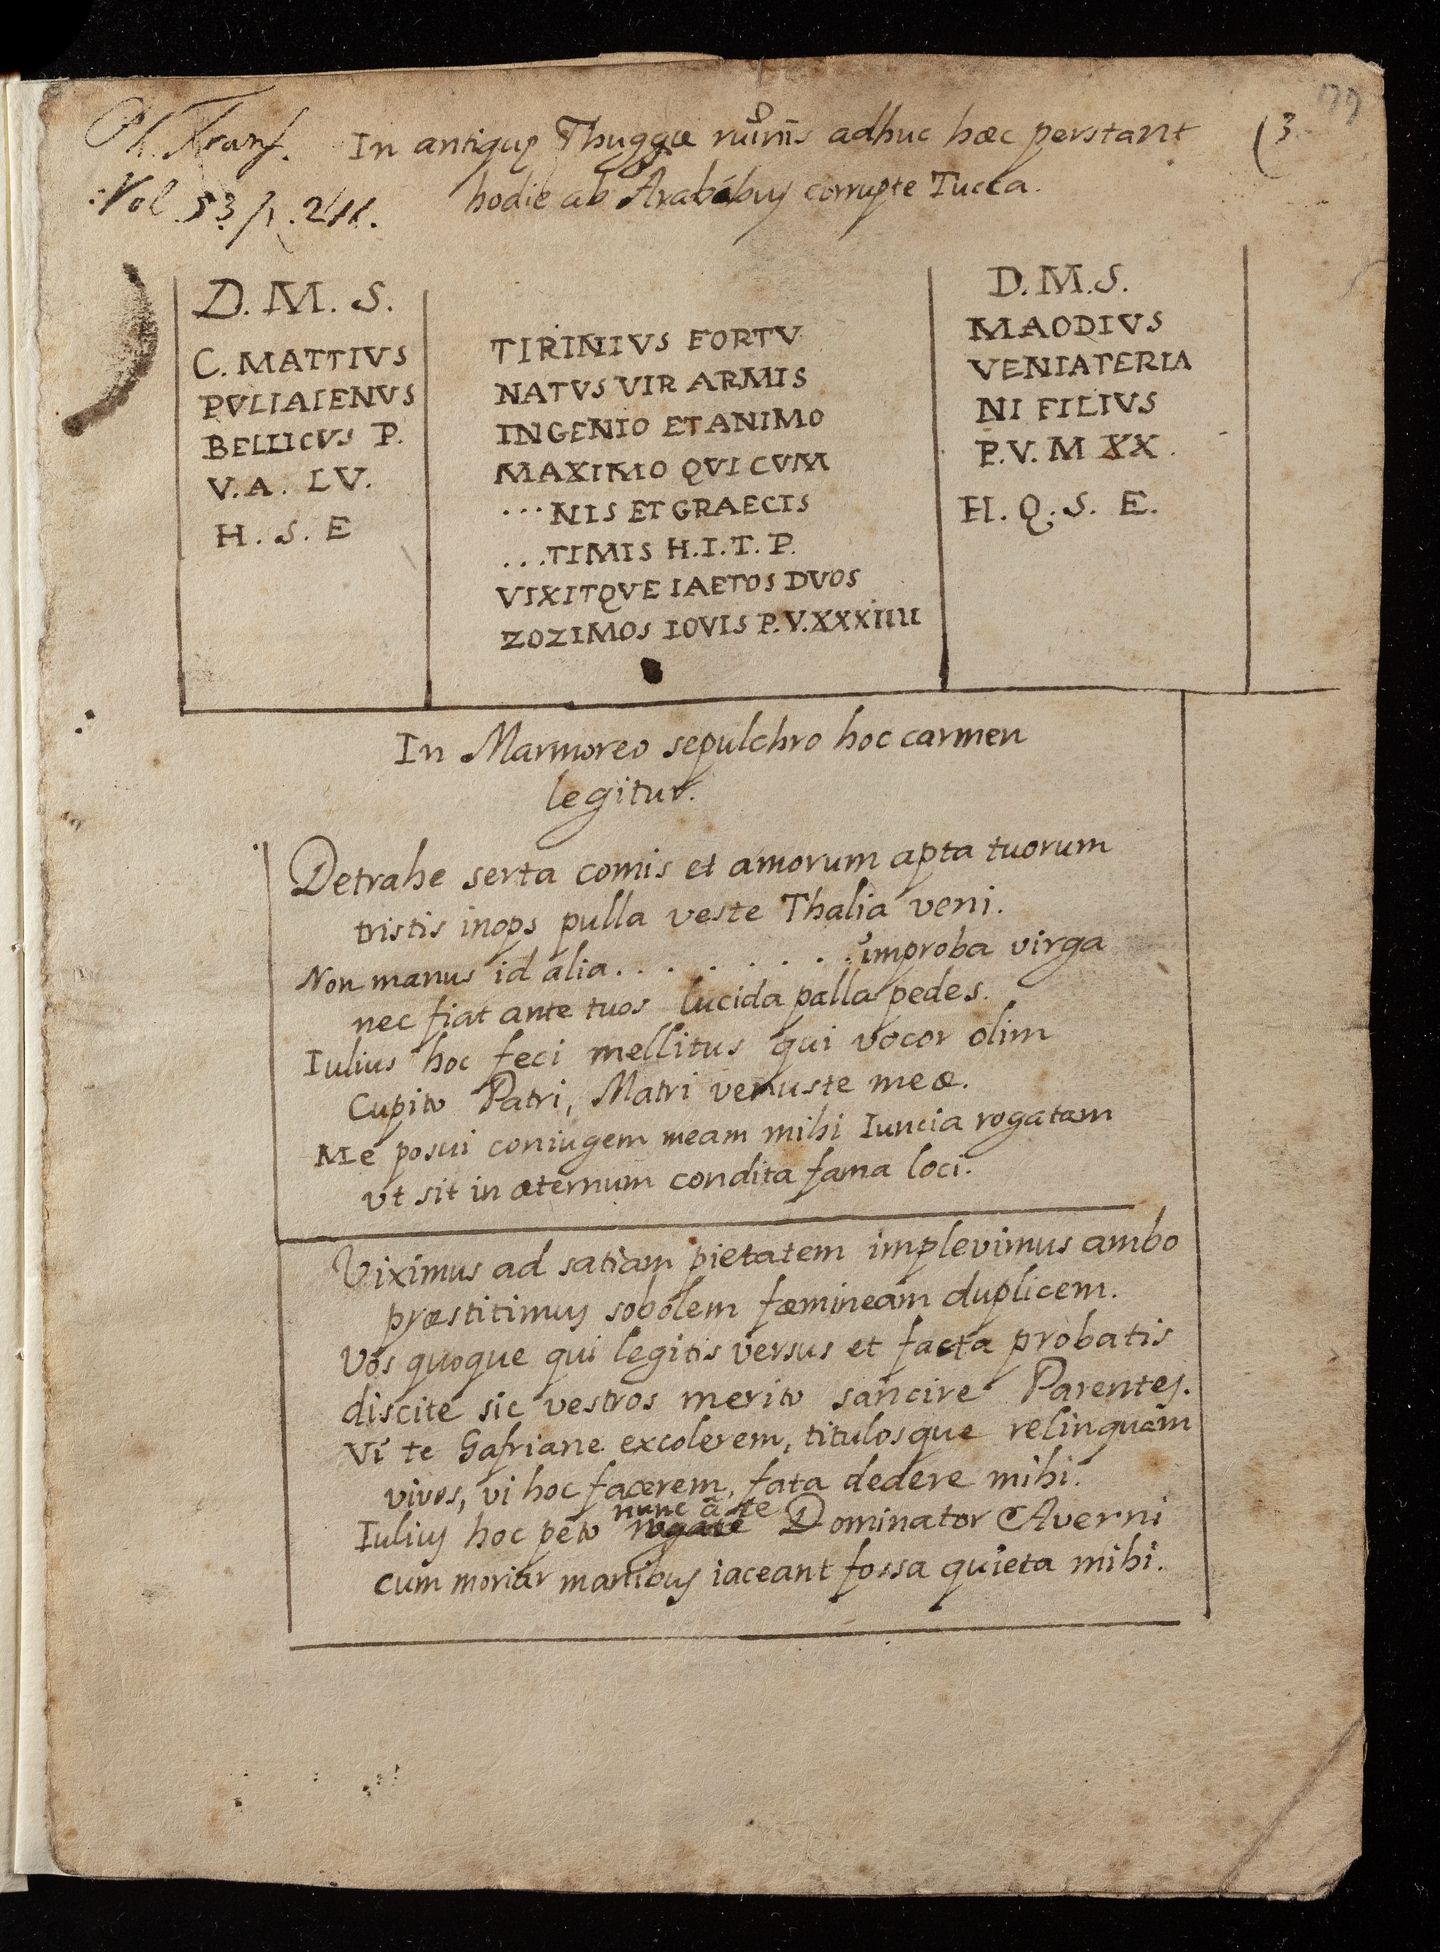 Ph. Transf.
Vol. 53 p. 211.
In antiquę Thuggæ ruinis adhuc hæc perstant
hodie ab Arabibus corrupte Tucca.
(3.
D. M. S.
C. MATTIVS
PVLIAIENVS
BELLICVS P.
V. A. LV.
H. S. E
TIRINIVS FORTV
NATVS VIR ARMIS
INGENIO ET ANIMO
MAXIMO QVI CVM
...NIS ET GRAECIS
...TIMIS H.I.T.P.
VIXITQVE IAETOS DVOS
ZOZIMOS IOVIS P.V.XXXIIII
D.M.S.
MAODIVS
VENIATERIA
NI FILIVS
P.V. M XX.
H. Q. S. E.
In Marmoreo sepulchro hoc carmen
legitur.
Detrahe serta comis et amorum apta tuorum
tristis inops pulla veste Thalia veni.
Non manus id alia . . . . . . . . improba virga
nec fiat ante tuos lucida palla pedes.
Iulius hoc feci mellitus qui vocor olim
Cupito Patri, Matri venuste meæ.
Me posui coniugem meam mihi Iuncia rogatam
vt sit in æternum condita fama loci.
Viximus ad satiam pietatem implevimus ambo
præstitimus sobolem fæmineam duplicem.
Vos quoque qui legitis versus et facta probatis
discite sic vestros merito sancire Parentes.
Vi te Gafriane excolerem, titulosque relinquam
vivos, vi hoc facerem, fata dedere mihi.
Iulius hoc peto nunc à te Dominator Averni
cum moriar manibus iaceant fossa quieta mihi.